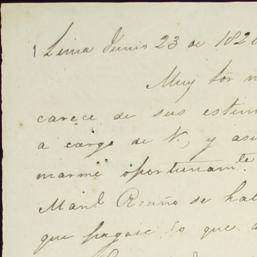 Lima Junio 23 de 182
Muy Sor m
carece de sus estim
a cargo de V, y asi
marme oportunam.te
Man.l se hal
que pague lo que